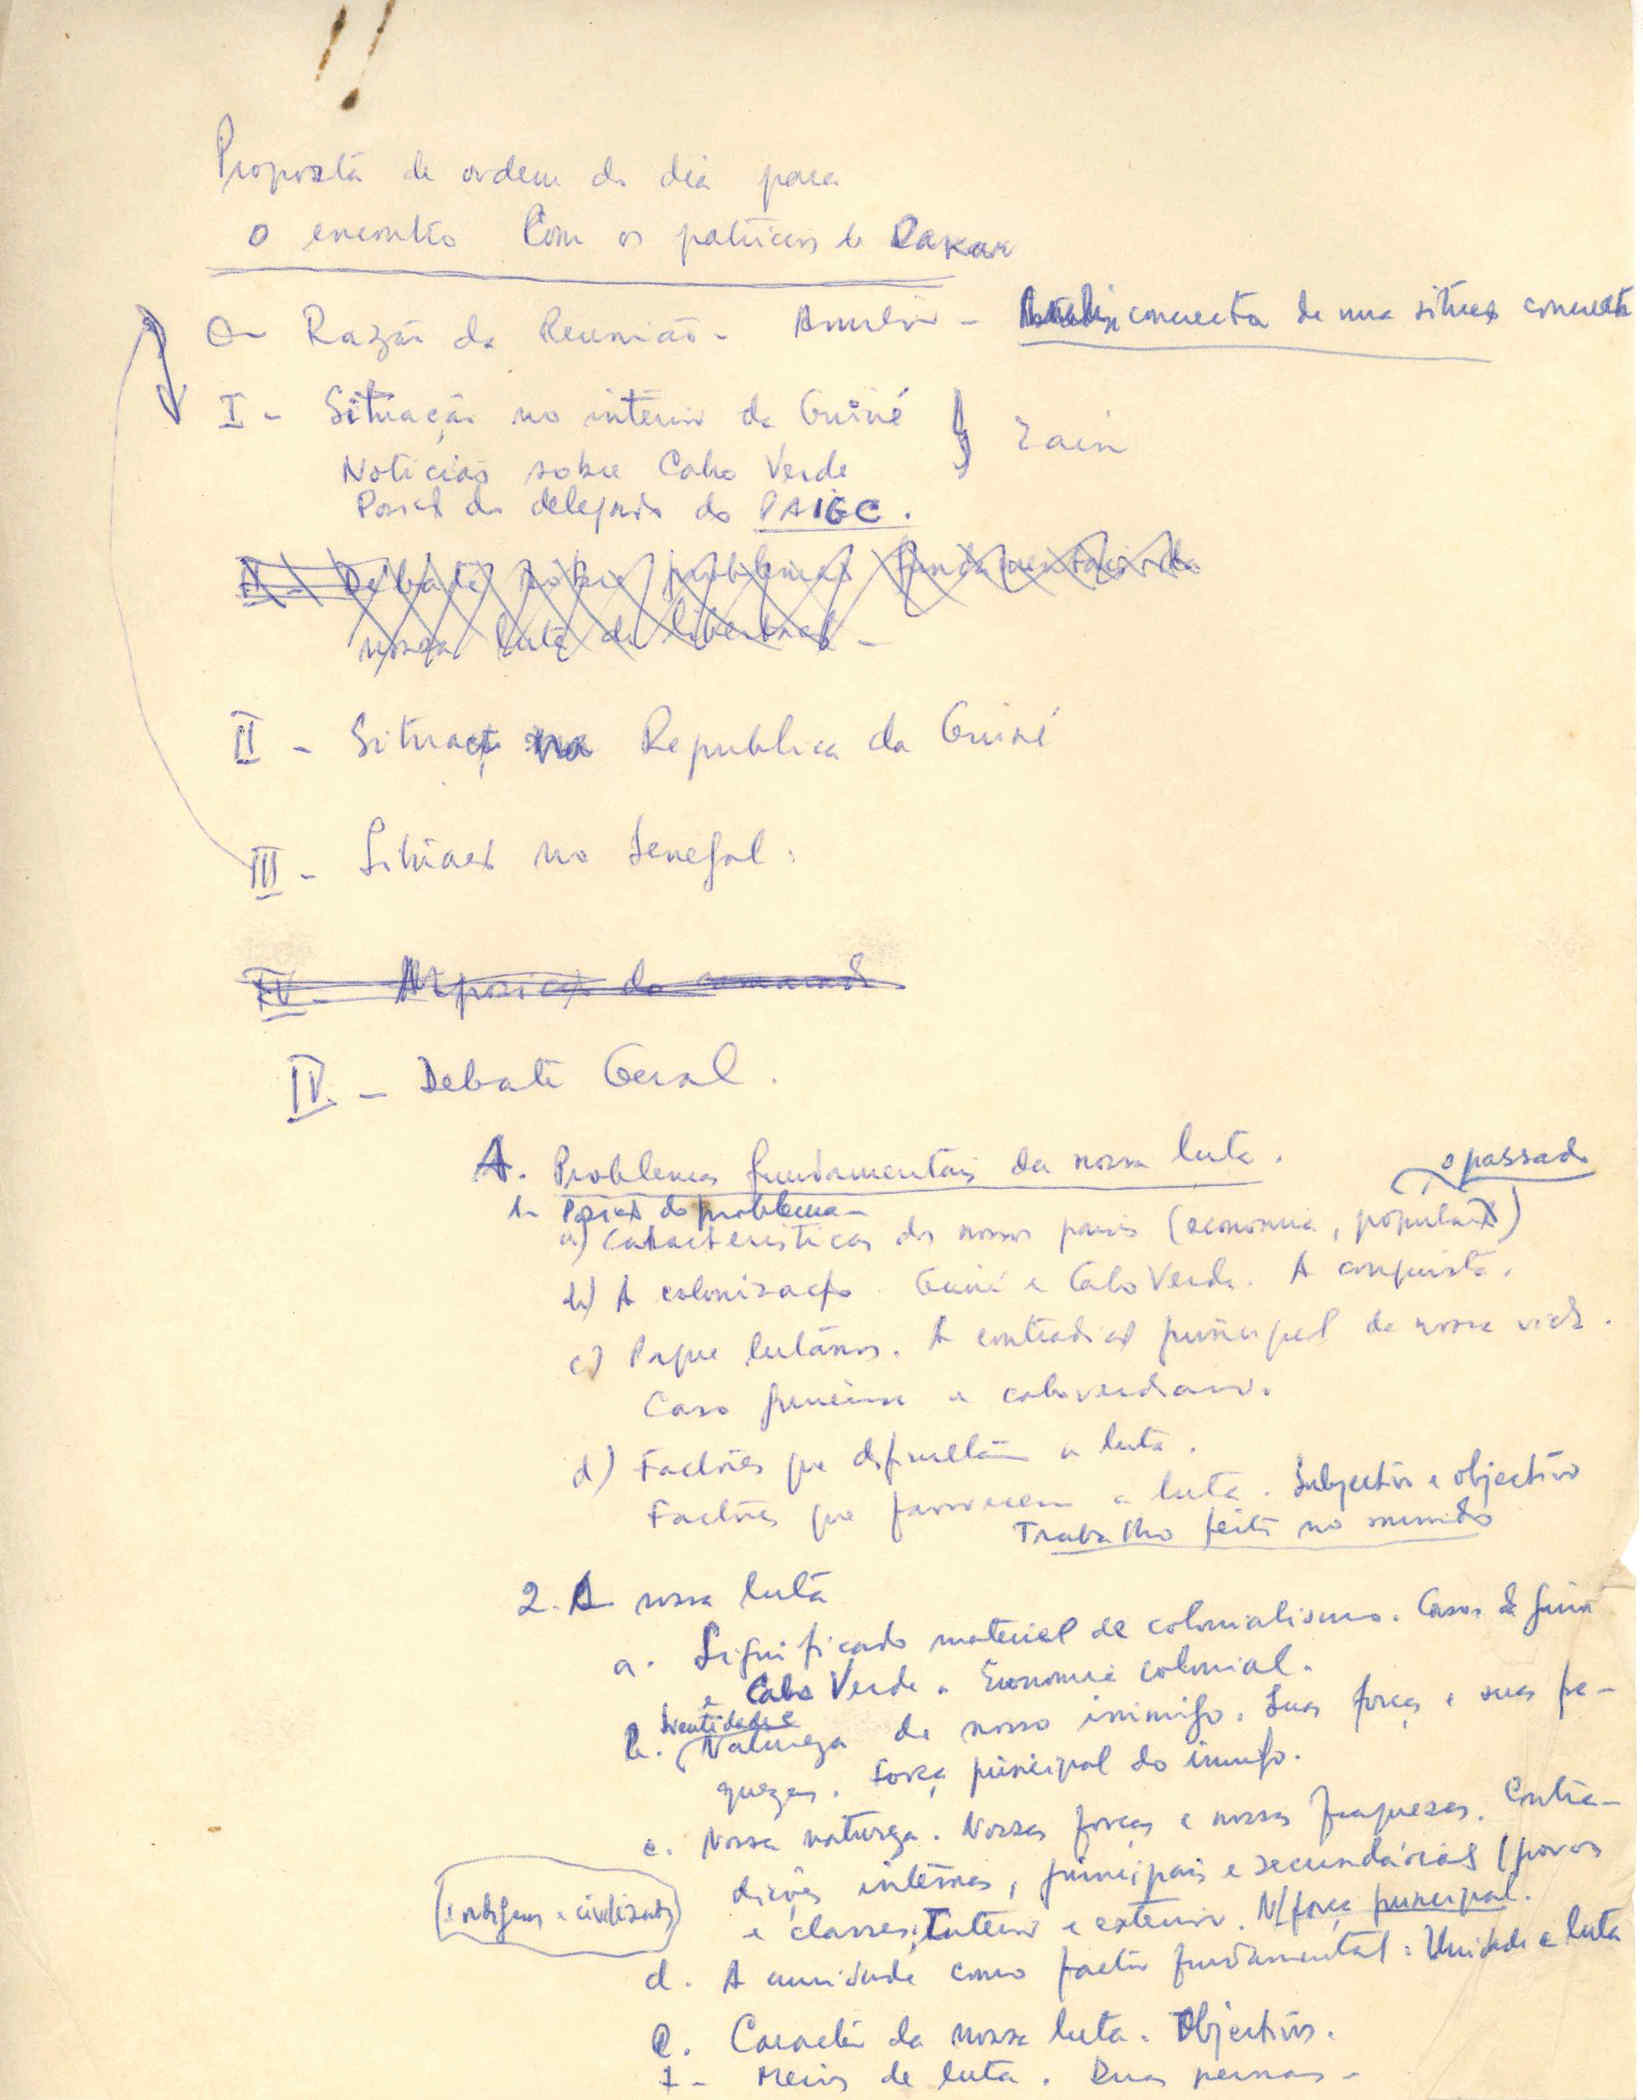 Proposta de ordem do dia para
o encontro com os patrícios de Dakar
0 - Razão da Reunião - Amílcar - Análise concreta de uma situação concreta
I - Situação no interior da Guiné
Notícias sobre Cabo Verde
Posição da delegação do PAIGC.
II - Debate sobre problemas fundamentais da
nossa luta de libertação -
II - Situação na Republica da Guiné
III - Situação no Senegal.
IV -
IV - Debate Geral.
A. Problemas fundamentais da nossa luta.
o passado
1- Posição do problema -
a) Caracteristicas dos nossos países (economia, população)
b) A colonização Guiné e Cabo Verde. A conquista.
c) Porque lutamos. A contradição principal da nossa vida.
Caso guineense e caboverdiano.
d) Factores que dificultam a luta.
Factores que favorecem a luta. Subjectivo e objectivo
Trabalho feito no mundo
2. A nossa luta
a. Significado material de colonialismo. Casos da Guiné
e Cabo Verde. Economia colonial.
Identidade
b. Natureza do nosso inimigo. Suas forças e suas fra-
quezas. Força principal do inimigo.
c. Nossa natureza. Nossas forças e nossas fraquezas. Contra-
dições internas, principais e secundárias (povos
(indígenas e civilizados)
e classes; Interior e exterior. N/força principal.
d. A unidade como factor fundamental: Unidade e luta
e. Caracter da nossa luta. Objectivos.
1 - Meios de luta. Duas pernas -